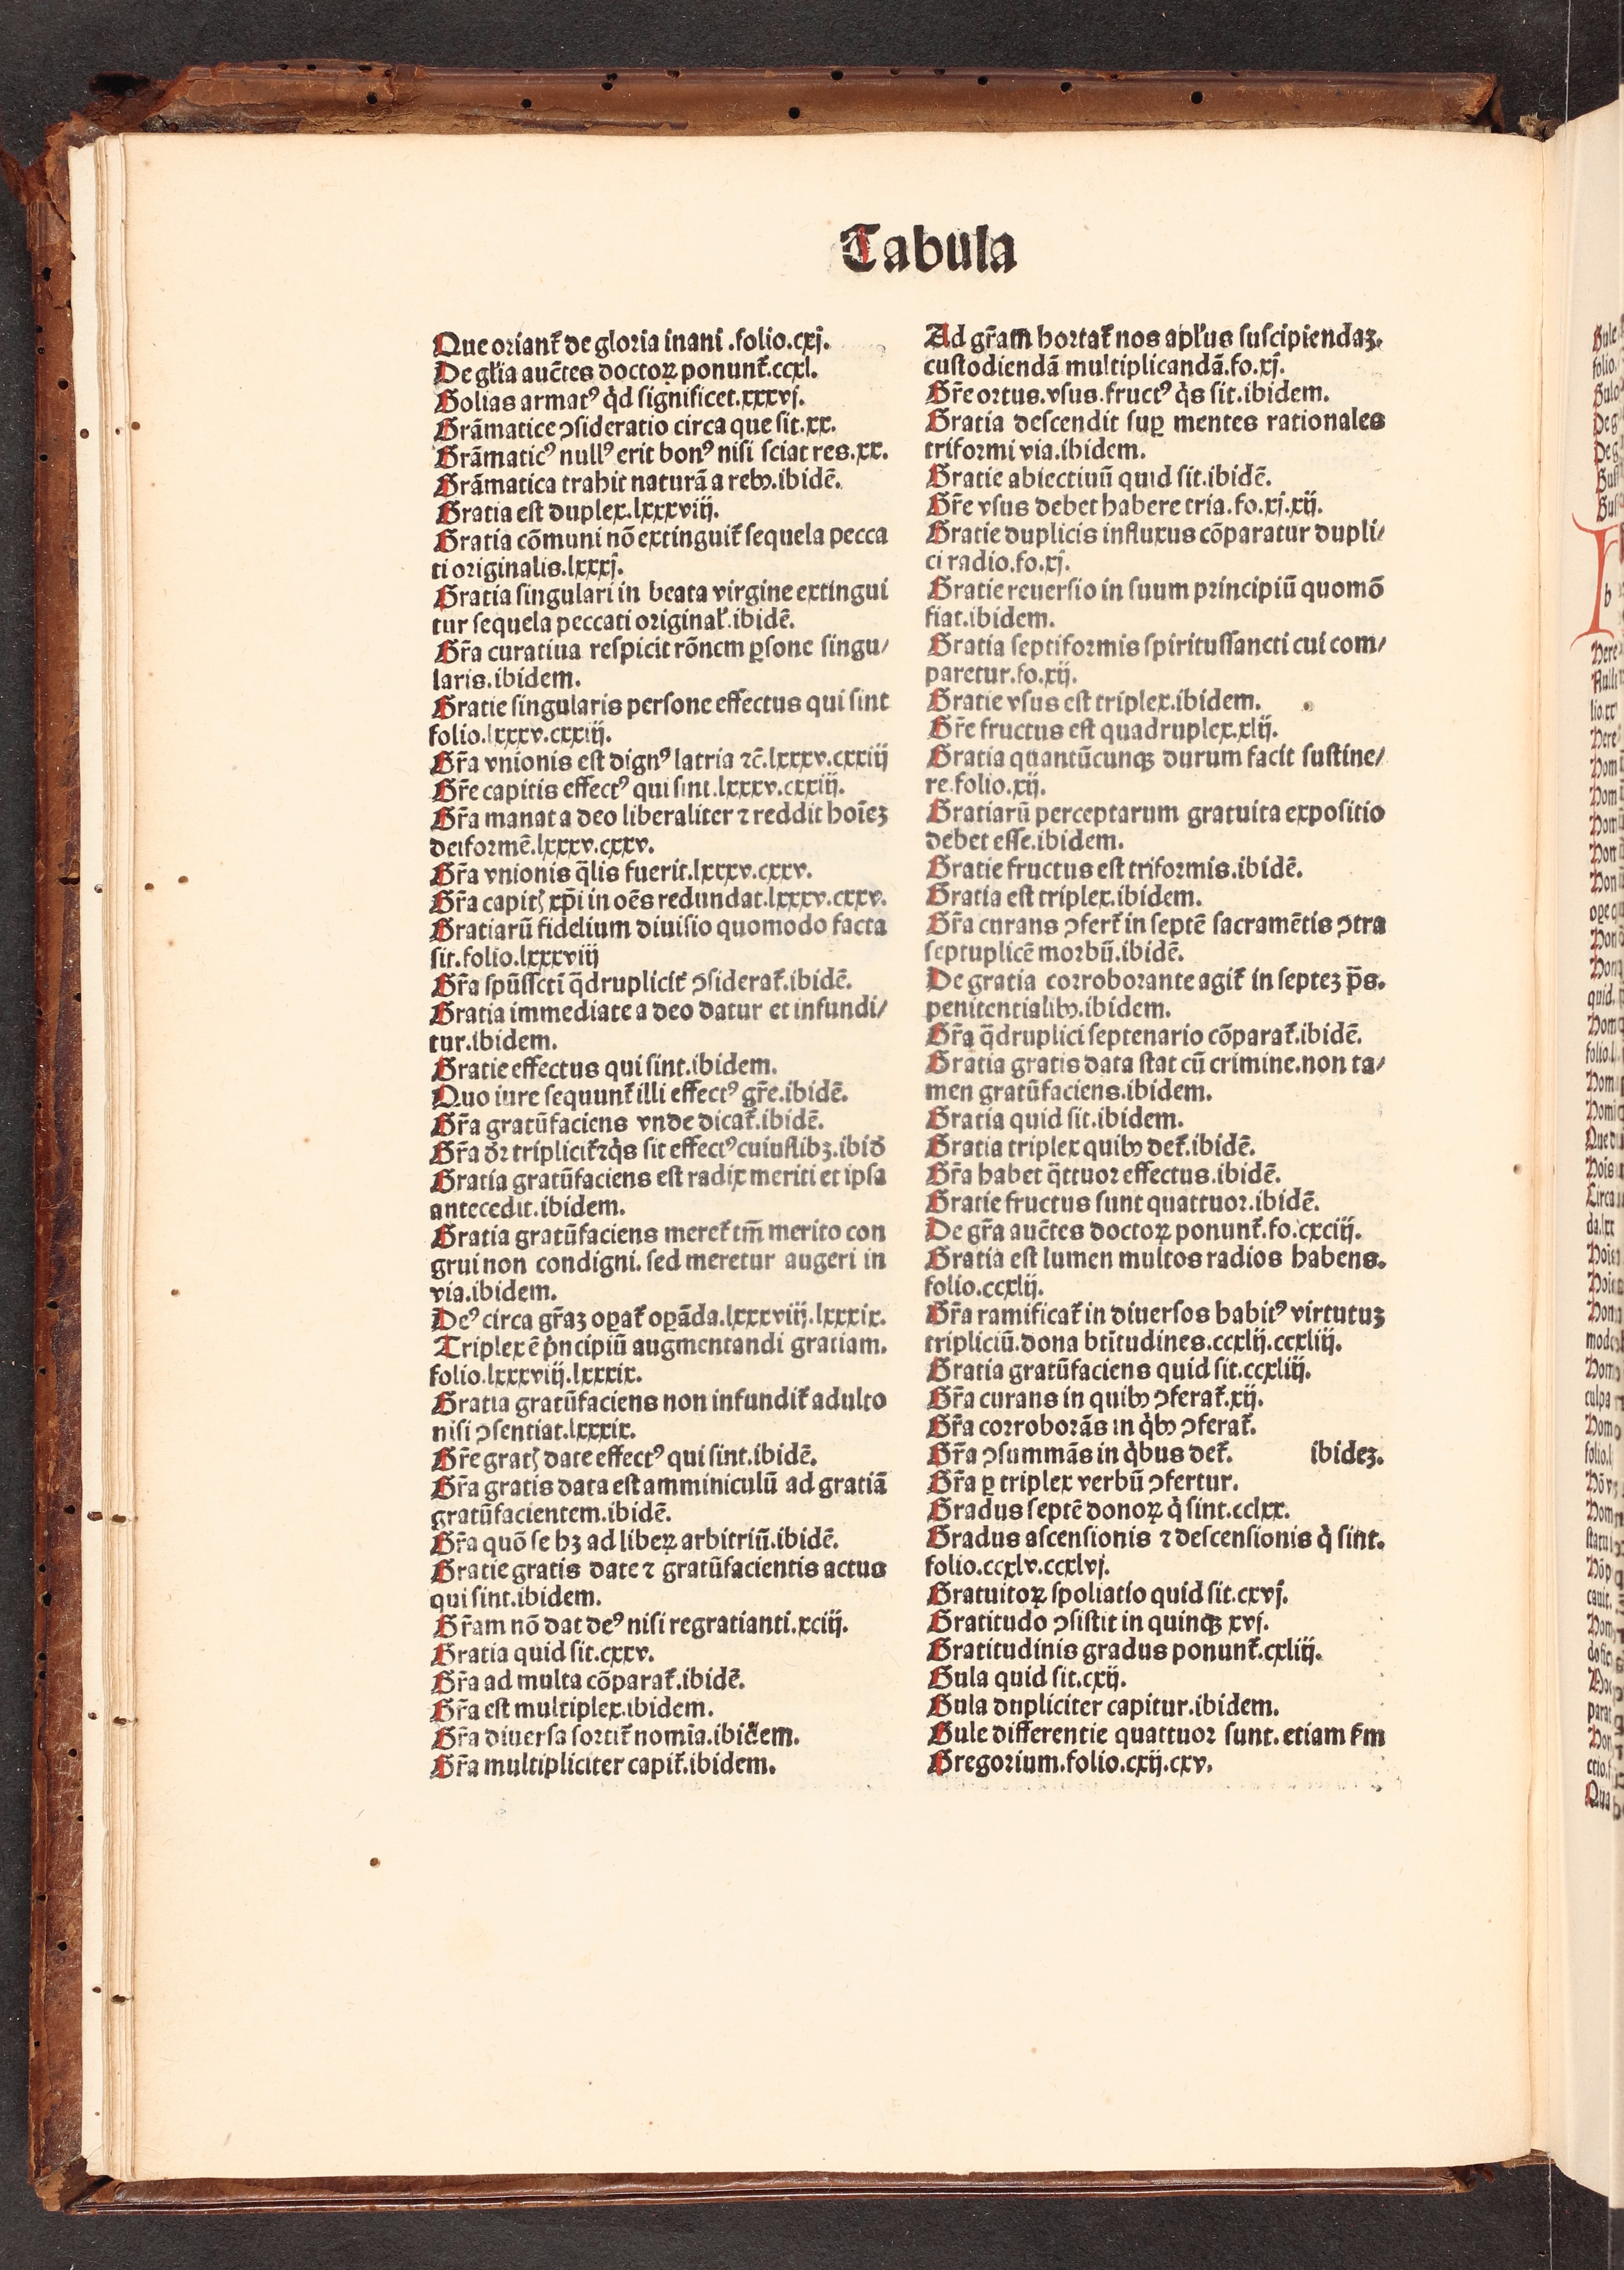 Tabula
Que oriant᷑ de gloria inani .folio.cxj.
De gl'ia auc̄tes doctoꝝ ponunt᷑.ccxl.
Golias armatꝰ qͥd significet.xxxvj.
Grāmatice ↄsideratio circa que sit.xx.
Grāmaticꝰ nullꝰ erit bonꝰ nisi sciat res.xx.
Grāmatica trahit naturā a rebꝰ.ibidē.
Gratia est duplex.lxxxviij.
Gratia cōmuni nō extinguit᷑ sequela pecca
ti originalis.lxxxj.
Gratia singulari in beata virgine extingui
tur sequela peccati original'.ibidē.
Gr̄a curatiua respicit rōnem ꝑsone singu/
laris.ibidem.
Gratie singularis persone effectus qui sint
folio.lxxxv.cxxiij.
Gr̄a vnionis est dignꝰ latria ⁊c̄.lxxxv.cxxiij
Gr̄e capitis effectꝰ qui sint.lxxxv.cxxiij.
Gr̄a manat a deo liberaliter ⁊ reddit hoīeꝫ
deiformē.lxxxv.cxxv.
Gr̄a vnionis q̄lis fuerit.lxxxv.cxxv.
Gr̄a capitꝭ xp̄i in oēs redundat.lxxxv.cxxv.
Gratiarū fidelium diuisio quomodo facta
sit.folio.lxxxviij
Gr̄a spūssctī q̄druplicit᷑ ↄsiderat᷑.ibidē.
Gratia immediate a deo datur et infundi/
tur.ibidem.
Gratie effectus qui sint.ibidem.
Quo iure sequunt᷑ illi effectꝰ gr̄e.ibidē.
Gr̄a gratūfaciens vnde dicat᷑.ibidē.
Gr̄a d̄r triplicit᷑ ⁊ qͥs sit effectꝰ cuiuslibꝫ.ibid̄
Gratia gratūfaciens est radix meriti et ipsa
antecedit.ibidem.
Gratia gratūfaciens meret᷑ tm̄ merito con
grui non condigni. sed meretur augeri in
via.ibidem.
Deꝰ circa gr̄aꝫ oꝑat᷑ oꝑāda.lxxxviij.lxxxix.
Triplex ē pͥncipiū augmentandi gratiam.
folio.lxxxviij.lxxxix.
Gratia gratūfaciens non infundit᷑ adulto
nisi ↄsentiat.lxxxix.
Gr̄e gratꝭ date effectꝰ qui sint.ibidē.
Gr̄a gratis data est amminiculū ad gratiā
gratūfacientem.ibidē.
Gr̄a quō se hꝫ ad libeꝝ arbitriū.ibidē.
Gratie gratis date ⁊ gratūfacientis actus
qui sint.ibidem.
Gr̄am nō dat deꝰ nisi regratianti.xciij.
Gratia quid sit.cxxv.
Gr̄a ad multa cōparat᷑.ibidē.
Gr̄a est multiplex.ibidem.
Gr̄a diuersa sortit᷑ nomīa.ibidem.
Gr̄a multipliciter capit᷑.ibidem.
Ad gr̄am hortat᷑ nos apl'us suscipiendaꝫ.
custodiendā multiplicandā.fo.xj.
Gr̄e ortus.vsus.fructꝰ qͥs sit.ibidem.
Gratia descendit suꝑ mentes rationales
triformi via.ibidem.
Gratie abiectiuū quid sit.ibidē.
Gr̄e vsus debet habere tria.fo.xj.xij.
Gratie duplicis influxus cōparatur dupli/
ci radio.fo.xj.
Gratie reuersio in suum principiū quomō
fiat.ibidem.
Gratia septiformis spiritussancti cui com/
paretur.fo.xij.
Gratie vsus est triplex.ibidem.
Gr̄e fructus est quadruplex.xlij.
Gratia quantūcunqꝫ durum facit sustine/
re.folio.xij.
Gratiarū perceptarum gratuita expositio
debet esse.ibidem.
Gratie fructus est triformis.ibidē.
Gratia est triplex.ibidem.
Gr̄a curans ↄfert᷑ in septē sacramētis ↄtra
septuplicē morbū.ibidē.
De gratia corroborante agit᷑ in septeꝫ p̄s.
penitentialibꝰ.ibidem.
Gr̄a q̄druplici septenario cōparat᷑.ibidē.
Gratia gratis data stat cū crimine.non ta/
men gratūfaciens.ibidem.
Gratia quid sit.ibidem.
Gratia triplex quibꝰ det᷑.ibidē.
Gr̄a habet q̄ttuor effectus.ibidē.
Gratie fructus sunt quattuor.ibidē.
De gr̄a auc̄tes doctoꝝ ponunt᷑.fo.cxciij.
Gratia est lumen multos radios habens.
folio.ccxlij.
Gr̄a ramificat᷑ in diuersos habitꝰ virtutuꝫ
tripliciū.dona btītudines.ccxlij.ccxliij.
Gratia gratūfaciens quid sit.ccxliij.
Gr̄a curans in quibꝰ ↄferat᷑.xij.
Gr̄a corroborās in qͥbꝰ ↄferat᷑.
Gr̄a ↄsummās in qͥbus det᷑. ibideꝫ.
Gr̄a ꝑ triplex verbū ↄfertur.
Gradus septē donoꝝ qͥ sint.cclxx.
Gradus ascensionis ⁊ descensionis qͥ sint.
folio.ccxlv.ccxlvj.
Gratuitoꝝ spoliatio quid sit.cxvj.
Gratitudo ↄsistit in quinqꝫ xvj.
Gratitudinis gradus ponunt᷑.cxliij.
Gula quid sit.cxij.
Gula dupliciter capitur.ibidem.
Gule differentie quattuor sunt. etiam s̄m
Gregorium.folio.cxij.cxv.